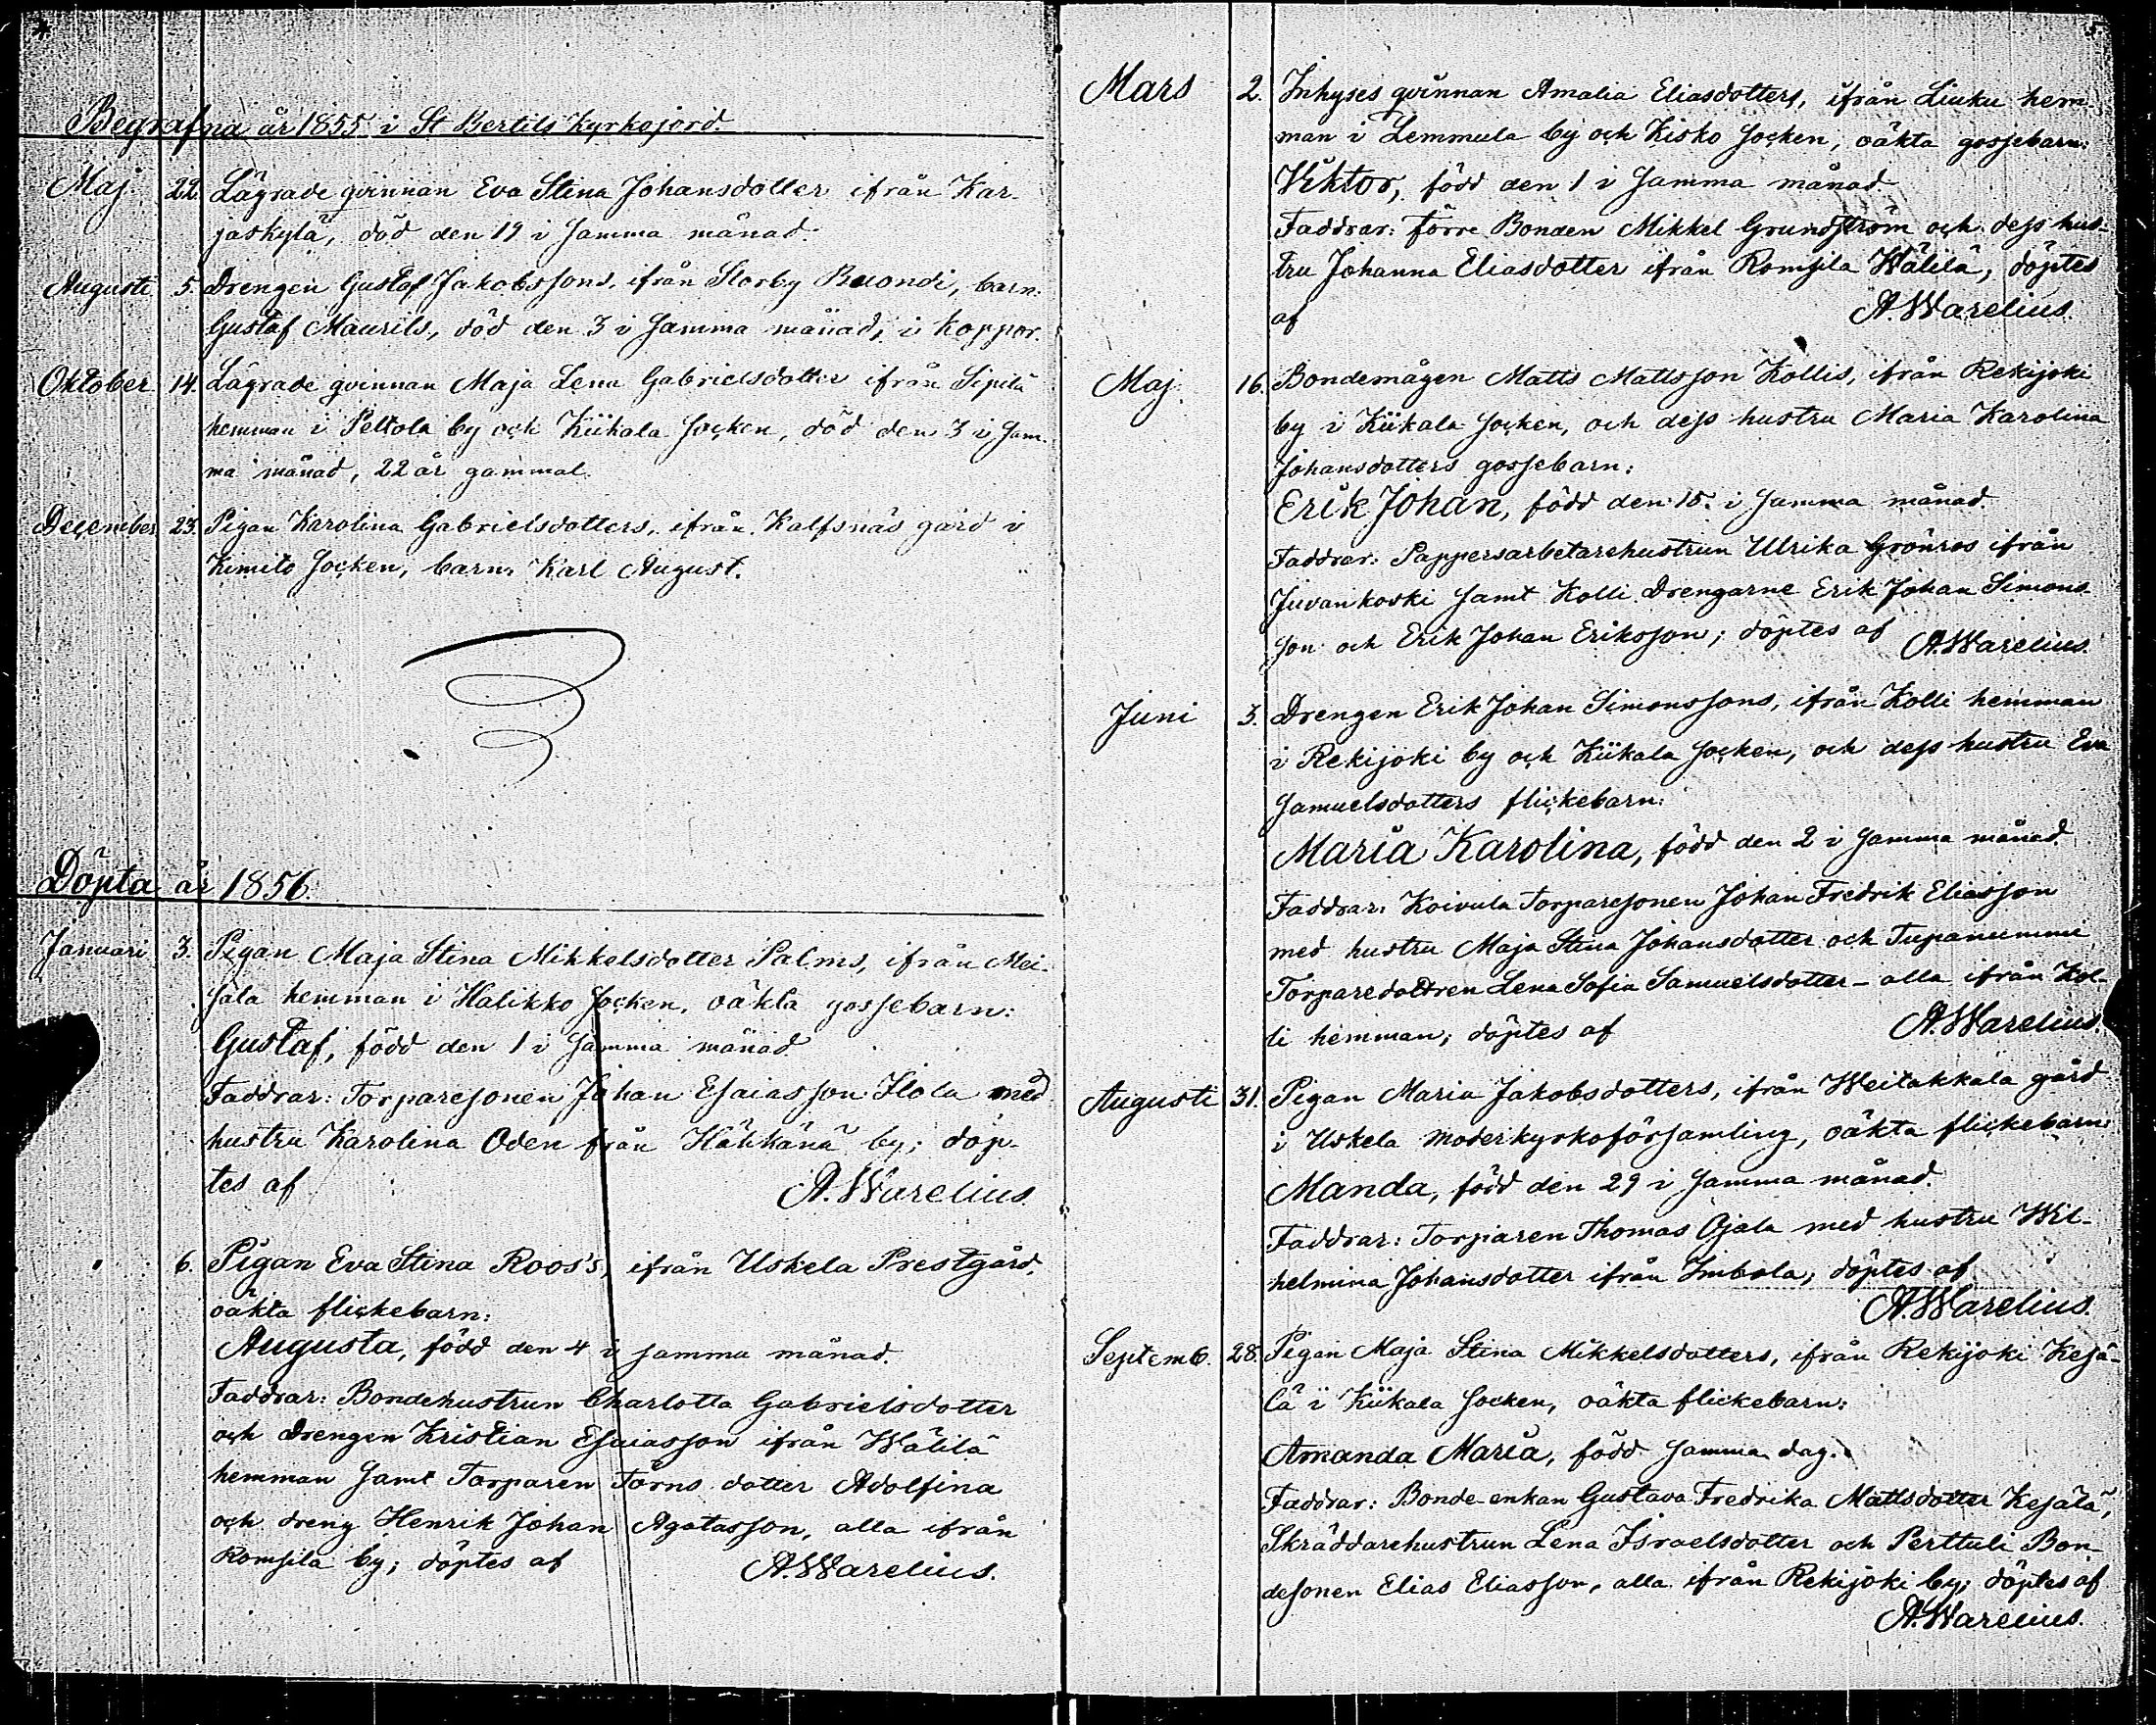 Begrafna år 1855 i St Bertils Kyrkojord.
Maj. 22. Lägrade qvinnan Eva Stina Johansdotter ifrån Kar-
jaskylä, död den 19 i samma månad.
Augusti 5. Drengen Gustaf Jakobssons, ifrån Storby Buondi, barn:
Gustaf Maurits, död den 3 i samma månad, i koppor.
Oktober 14. Lägrade qvinnan Maja Lena Gabrielsdotter ifrån Sipilä
hemman i Peltola by och Kiikala Socken, död den 3 i sam-
ma månad, 22 år gammal.
December 23. Pigan Karolina Gabrielsdotters, ifrån Kalfsnäs gård i
Kimito Socken, barn: Karl August.
Döpta år 1856.
Januari 3. Pigan Maja Stina Mikkelsdotter Palms, ifrån Mei-
sala hemman i Halikko Socken, oäkta gossebarn:
Gustaf, född den 1 i samma månad
Faddrar: Torparesonen Johan Esaiasson Ilola med
hustru Karolina Oden från Häkkänä by; döp-
tes af A. Warelius.
" 6. Pigan Eva Stina Roos's, ifrån Uskela Prestgård,
oäkta flickebarn:
Augusta, född den 4 i samma månad.
Faddrar: Bondehustrun Charlotta Gabrielsdotter
och Drengen Kristian Esaiasson ifrån Wälilä
hemman samt Torparen Törns dotter Adolfina
och dreng Henrik Johan Agatasson, alla ifrån
Romsila by; döptes af A. Warelius.
5.
Mars 2. Inhyses qvinnan Amalia Eliasdotters, ifrån Liuku hem-
man i Lemmula by och Kisko Socken, oäkta gossebarn:
Viktor, född den 1 i samma månad.
Faddrar: förre Bonden Mikkel Grundström och dess hus-
tru Johanna Eliasdotter ifrån Romsila Wälilä; döptes
af A. Warelius.
Maj. 16. Bondemågen Matts Mattsson Kollis, ifrån Rekijoki
by i Kiikala Socken, och dess hustru Maria Karolina
Johansdotters gossebarn:
Erik Johan, född den 15. i samma månad.
Faddrar: Pappersarbetarehustrun Ulrika Grönros ifrån
Juvankoski samt Kolli Drengarne Erik Johan Simons-
son och Erik Johan Eriksson; döptes af A. Warelius.
Juni 3. Drengen Erik Johan Simonssons, ifrån Kolli hemman
i Rekijoki by och Kiikala Socken, och dess hustru Eva
Samuelsdotters flickebarn:
Maria Karolina, född den 2 i samma månad.
Faddrar: Koivula Torparesonen Johan Fredrik Eliasson
med hustru Maja Stina Johansdotter och Tupanummi
Torparedottren Lena Sofia Samuelsdotter – alla ifrån Kol-
li hemman; döptes af A. Warelius.
Augusti 31. Pigan Maria Jakobsdotters, ifrån Weitakkala gård
i Uskela moderkyrkoförsamling, oäkta flickebarn:
Manda, född den 29 i samma månad.
Faddrar: Torparen Thomas Ojala med hustru Wil-
helmina Johansdotter ifrån Imbola; döptes af
A. Warelius.
Septemb. 28. Pigan Maja Stina Mikkelsdotters, ifrån Rekijoki Kesä-
lä i Kiikala Socken, oäkta flickebarn:
Amanda Maria, född samma dag.
Faddrar: Bonde-enkan Gustava Fredrika Mattsdotter Kesälä,
Skräddarehustrun Lena Israelsdotter och Perttuli Bon-
desonen Elias Eliasson, alla ifrån Rekijoki by; döptes af
A. Warelius.